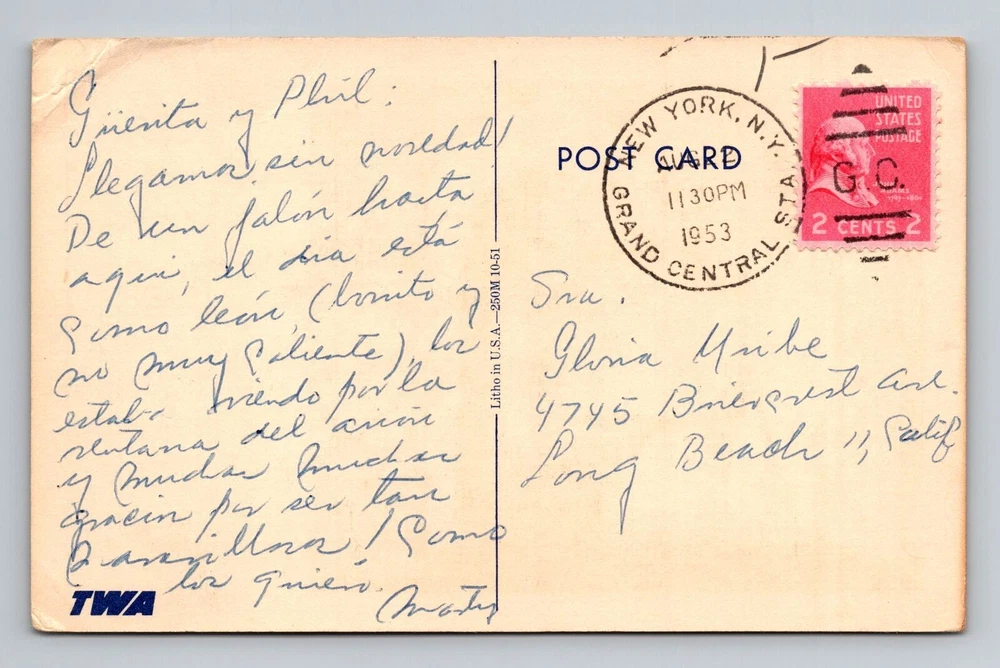 Güerita y Phil:
Llegamos sin novedad!
De un jalón hasta
aqui, el dia está
como león, (bonito y
no muy caliente), los
estaba viendo por la
ventana del avión
y muchas muchas
gracias por ser tan
maravillosos! Como
los quiero.
TWA
Litho in U.S.A.—250M 10-51
POST CARD
NEW YORK, N.Y.
AUG
11 30 PM
1953
GRAND CENTRAL STA.
G.C.
UNITED
STATES
POSTAGE
ADAMS
2 CENTS 2
Sra.
Gloria Uribe
4745 Briercrest Ave.
Long Beach 11, Calif